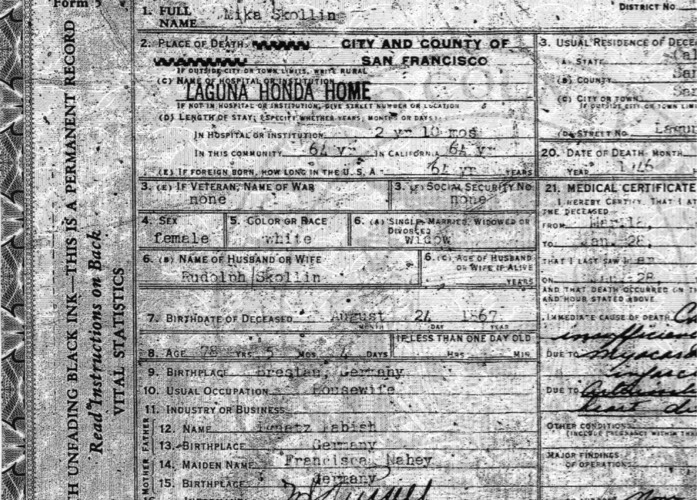 Form 5
DISTRICT NO.
1. FULL NAME Mika Skollin
2. PLACE OF DEATH CITY AND COUNTY OF SAN FRANCISCO
IF OUTSIDE CITY OR TOWN LIMITS, WRITE RURAL
(C) NAME OF HOSPITAL OR INSTITUTION
LAGUNA HONDA HOME
IF NOT IN HOSPITAL OR INSTITUTION, GIVE STREET NUMBER OR LOCATION
(D) LENGTH OF STAY, (SPECIFY WHETHER YEARS, MONTHS OR DAYS)
IN HOSPITAL OR INSTITUTION 2 yr 10 mos
IN THIS COMMUNITY 64 yr IN CALIFORNIA 64 yr
(E) IF FOREIGN BORN, HOW LONG IN THE U. S. A. 64 yr YEARS
3. USUAL RESIDENCE OF DECE
(A) STATE Cal
(B) COUNTY San
(C) CITY OR TOWN San
IF OUTSIDE CITY OR TOWN LIM
(D) STREET NO. Lagun
3. (E) IF VETERAN, NAME OF WAR
none
3. (F) SOCIAL SECURITY NO.
none
20. DATE OF DEATH: MONTH
YEAR 1946
4. SEX
female
5. COLOR OR RACE
white
6. (A) SINGLE, MARRIED, WIDOWED OR DIVORCED
widow
21. MEDICAL CERTIFICATE
I HEREBY CERTIFY, THAT I AT
THE DECEASED
FROM
TO Jan. 28,
THAT I LAST SAW H er
ON Jan. 28
AND THAT DEATH OCCURRED ON TH
AND HOUR STATED ABOVE.
6. (B) NAME OF HUSBAND OR WIFE
Rudolph Skollin
6. (C) AGE OF HUSBAND OR WIFE IF ALIVE
YEARS
7. BIRTHDATE OF DECEASED August 24 1867
MONTH DAY YEAR
8. AGE 78 YRS. 5 MOS. 4 DAYS
IF LESS THAN ONE DAY OLD
HRS. MIN.
IMMEDIATE CAUSE OF DEATH
insufficien
DUE TO myocard
infarc
DUE TO
heart d
9. BIRTHPLACE Breslau, Germany
10. USUAL OCCUPATION Housewife
11. INDUSTRY OR BUSINESS
FATHER
12. NAME Ignatz Babish
13. BIRTHPLACE Germany
MOTHER
14. MAIDEN NAME Francisca Nahey
15. BIRTHPLACE Germany
OTHER CONDITIONS
(INCLUDE PREGNANCY WITHIN THR
MAJOR FINDINGS
OF OPERATIONS
H UNFADING BLACK INK—THIS IS A PERMANENT RECORD
Read Instructions on Back
VITAL STATISTICS